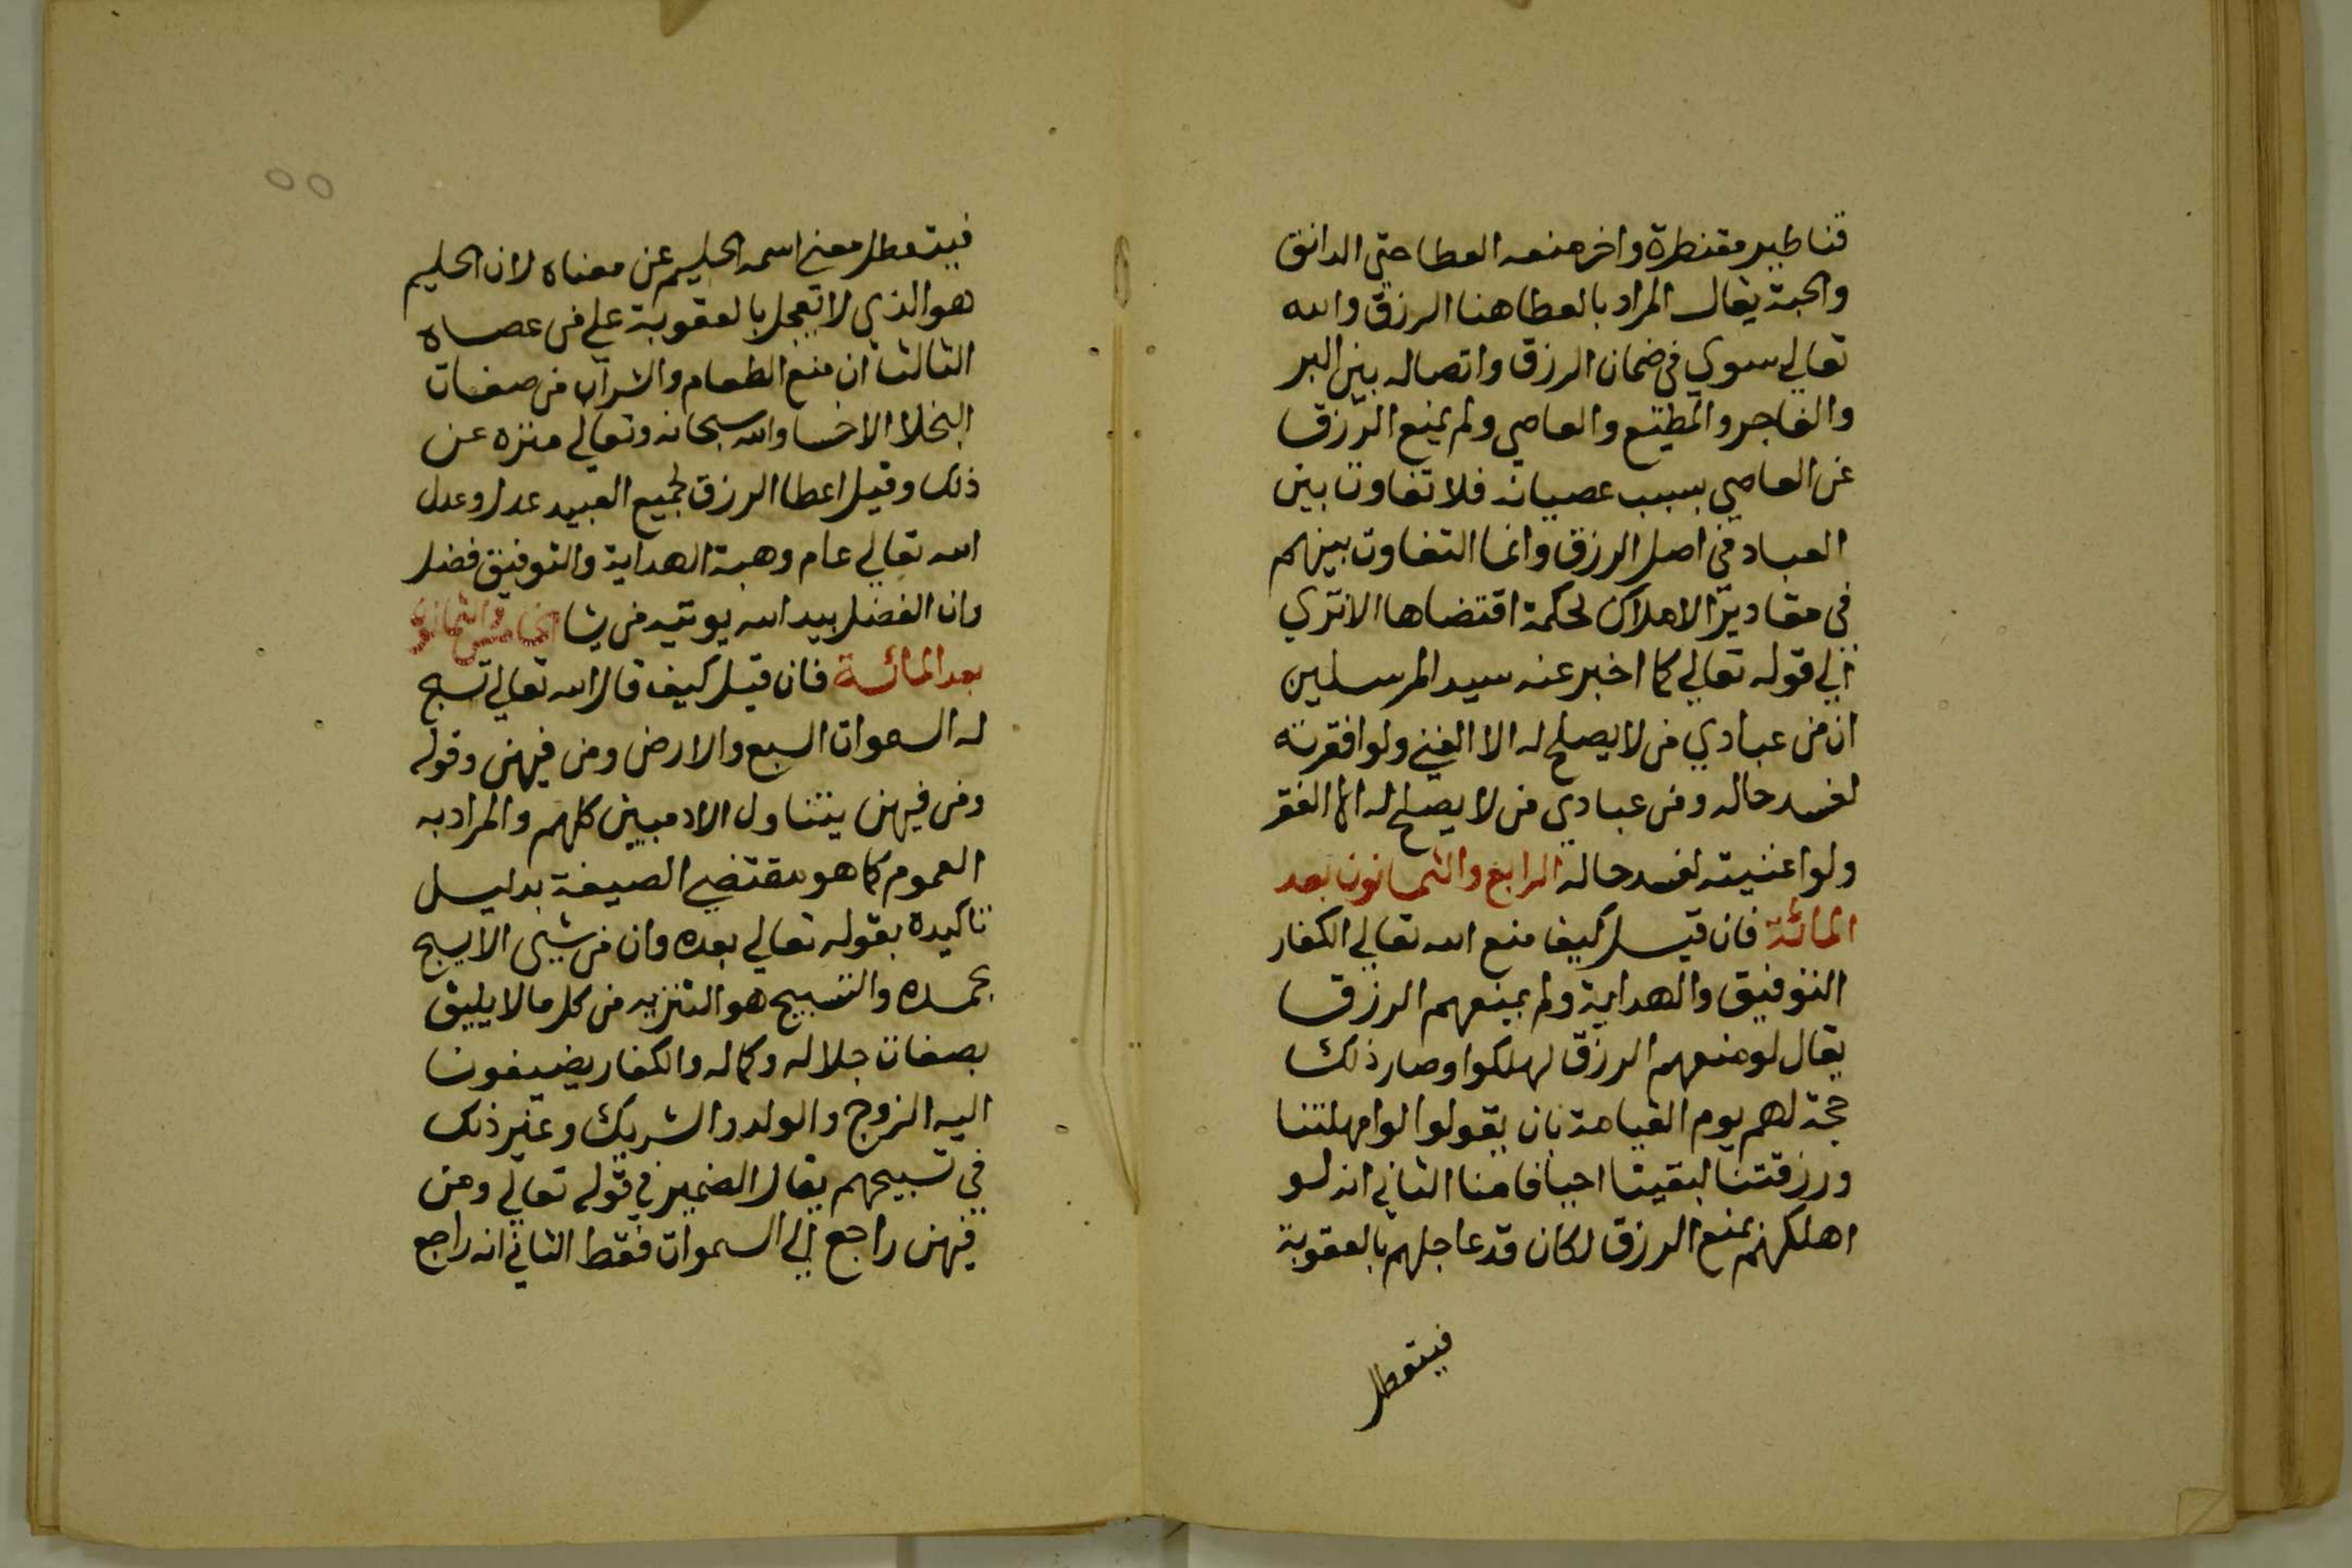 قناطير مقنطرة واخر منعه العطا حتي الدانق
والحبة يقال المراد بالعطا هنا الرزق والله
تعالي سوي في ضمان الرزق واتصاله بين البر
والفاجر والمطيع والعاصي ولم يمنع الرزق
عن العاصي بسبب عصيانه فلا تفاوت بين
العباد في اصل الرزق وانما التفاوت بينهم
في مقادير الاملاك لحكمة اقتضاها الا تري
الي قوله تعالي كما اخبر عنه سيد المرسلين
ان من عبادي من لا يصلح له الا الغني ولو افقرته
لفسد حاله ومن عبادي من لا يصلح له الا الفقر
ولو اغنيته لفسد حاله الرابع والثمانون بعد
المائة فان قيل كيف منع الله تعالي الكفار
التوفيق والهداية ولم يمنعهم الرزق
يقال لو منعهم الرزق لهلكوا وصار ذلك
حجة لهم يوم القيامة بان يقولوا لو امهلتنا
ورزقتنا لبقينا احيا فامنا الثاني انه لو
اهلكهم بمنع الرزق لكان قد عاجلهم بالعقوبة
فيتعطل
٥٥
فيتعطل معني اسمه الحليم عن معناه لان الحليم
هو الذي لا يعجل بالعقوبة علي من عصاه
الثالث ان منع الطعام والشراب من صفات
البخلا الاخسا والله سبحانه وتعالي منزه عن
ذلك وقيل اعطا الرزق لجميع العبيد عدل وعدل
الله تعالي عام وهبة الهداية والتوفيق فضل
وان الفضل بيد الله يوتيه من يشا الخامس والثمانون
بعد المائة فان قيل كيف قال الله تعالي تسبح
له السموات السبع والارض ومن فيهن وقوله
ومن فيهن يتناول الادميين كلهم والمراد به
العموم كما هو مقتضي الصيغة بدليل
تاكيده بقوله تعالي بعده وان من شيي الا يسبح
بحمده والتسبيح هو التنزيه من كل ما لا يليق
بصفات جلاله وكماله والكفار يضيفون
اليه الزوج والولد والشريك وغير ذلك
في تسبيحهم يقال الضمير في قوله تعالي ومن
فيهن راجع الي السموات فقط الثاني انه راجع